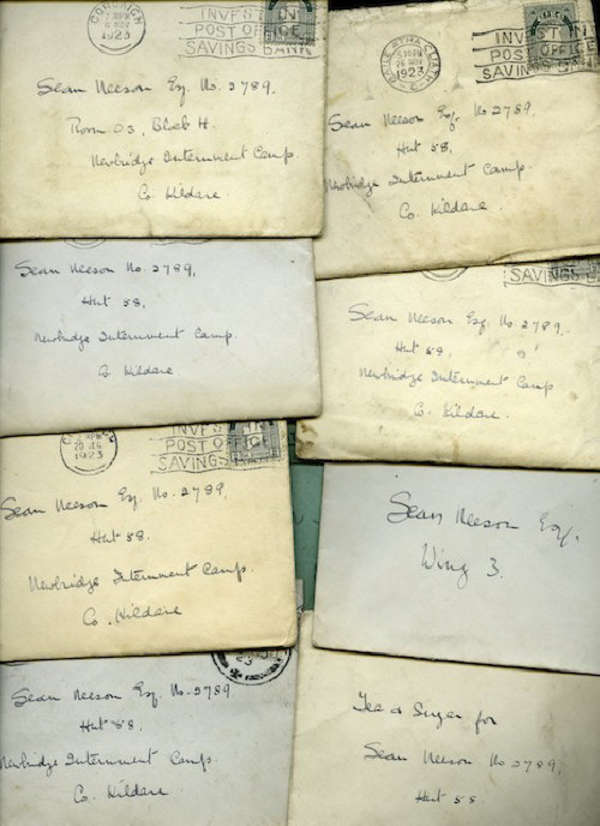 CORCAIGH
1923
INVEST IN
POST OFFICE
SAVINGS BANK
Sean Neeson Esq. No. 2789.
Room 03, Block H.
Newbridge Internment Camp.
Co. Kildare.
BAILE ÁTHA CLIATH
26 NOV
1923
INVEST
POST OFFICE
SAVINGS BAN
Sean Neeson Esq. No 2789.
Hut 58.
Newbridge Internment Camp.
Co. Kildare.
Sean Neeson No. 2789.
Hut 58.
Newbridge Internment Camp.
Co Kildare
SAVINGS B
Sean Neeson Esq. No 2789.
Hut 58,
Newbridge Internment Camp
Co. Kildare.
1923
INVES
POST OFFICE
SAVINGS
Sean Neeson Esq. No. 2789.
Hut 58.
Newbridge Internment Camp.
Co. Kildare
Sean Neeson Esq.
Wing 3.
Sean Neeson Esq. No. 2789
Hut 58.
Newbridge Internment Camp.
Co. Kildare.
Tea & Sugar for
Sean Neeson No 2789.
Hut 58